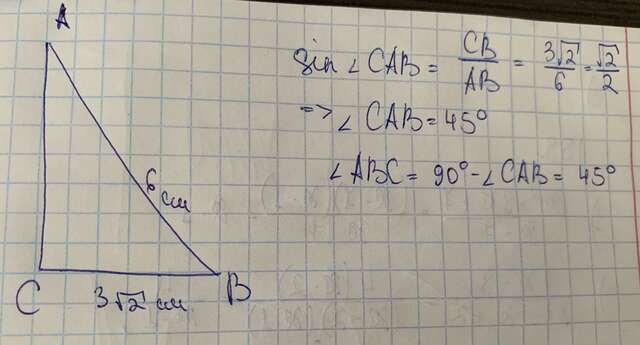 A
6 см
C
3√2 см
B
Sin ∠ CAB = CB/AB = 3√2/6 = √2/2
=> ∠ CAB = 45°
∠ ABC = 90° - ∠ CAB = 45°